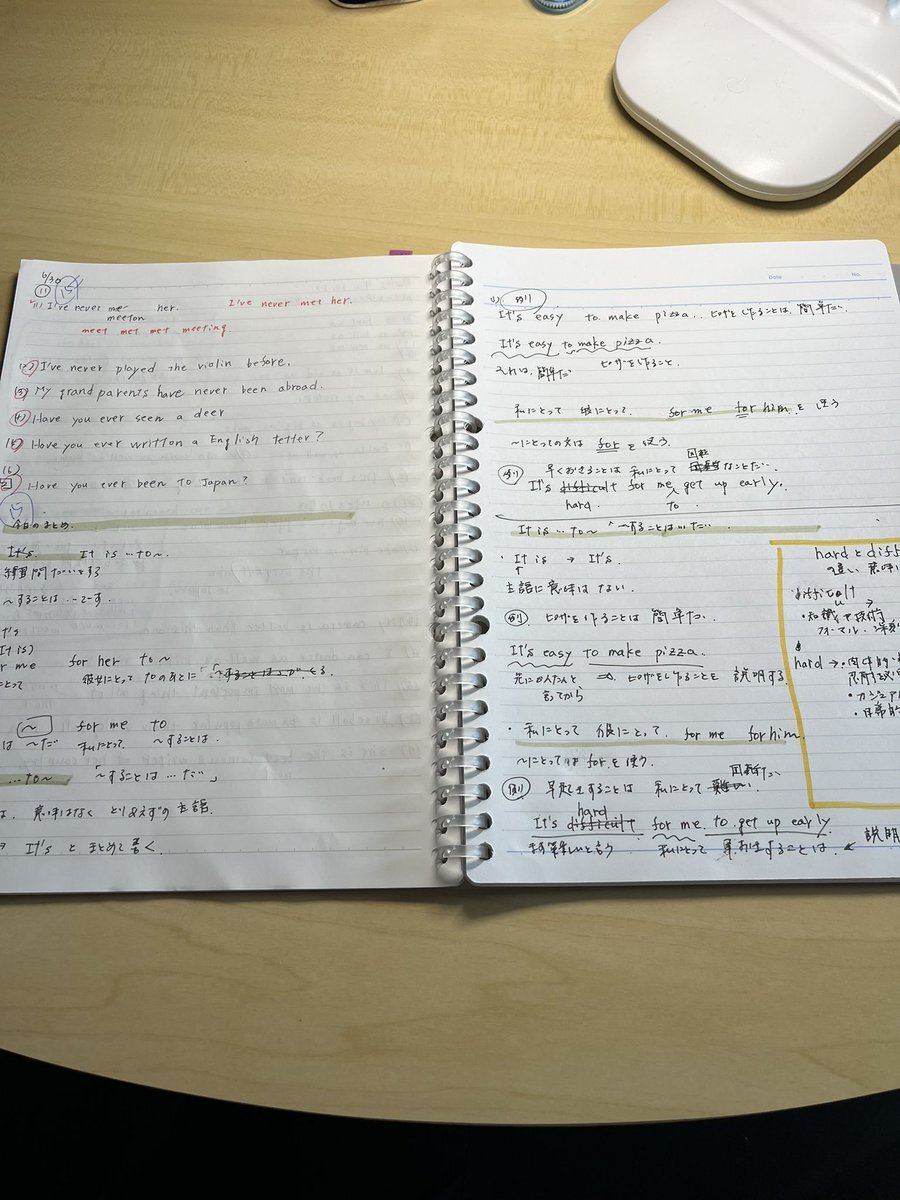 6/30
(1) I've never met her. I've never met her.
meeton
meet met met meeting
(2) I've never played the violin before.
(3) My grand parents have never been abroad.
(4) Have you ever seen a deer
(5) Have you ever written a English letter?
(6) Have you ever been to Japan?
今日のまとめ.
It's. It is …to~.
練習問だいをする
~することは…です.
It's
(It is)
for me for her to~
とって 彼女にとって toのあとに「~することは
~ for me to
は ~だ 私にとって ~することは.
…to~ 「~することは…だ」
は. 意味はなく とりあえずの主語.
It's とまとめて書く.
Date No.
(1) 例1
It's easy to make pizza.. ピザを作ることは、簡単だ.
It's easy to make pizza.
それは、簡単だ ピザを作ること.
私にとって 彼にとって. for me for him を使う
~にとっての文は for を使う.
例 早くおきることは 私にとって なことだ.
It's difficult for me get up early.
hard to
It is …to~「~することは…だ.
・It is → It's.
↑
主語に意味はない.
例. ピザを作ることは 簡単だ.
It's easy to make pizza.
先にかんたんと ⇒ ピザを作ることを 説明する
言ってから
・私にとって 彼にとって. for me for him.
~にとっては for を使う.
例 早起きすることは 私にとって
hard
It's difficult for me to get up early.
私にとって 早おきすることは. ← 説明
hard と diff
の違い 意味
difficult
・知識や技術
フォーマル
hard →・肉体的
・カジュアル
・日常的